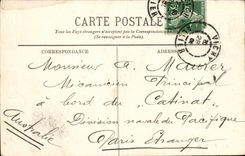 CARTE POSTALE
Tous les Pays étrangers n'acceptent pas la Correspondance au recto.
(Se renseigner à la Poste).
CORRESPONDANCE
ADRESSE
VICHY
Monsieur A. Maurer
Mécanicien Principal
à bord du "Catinat"
Division navale du Pacifique
Paris Étranger
Australie